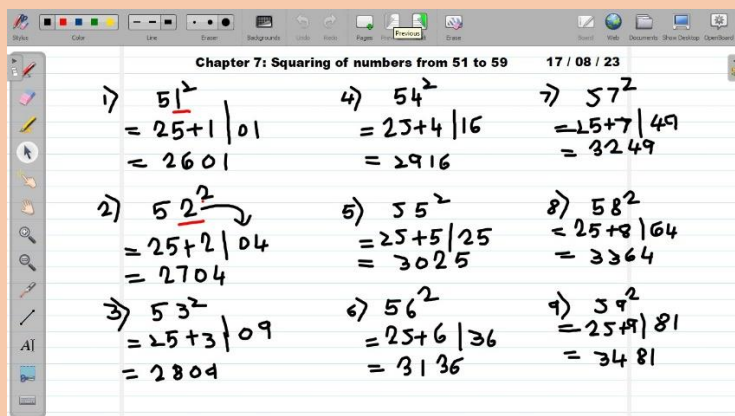 Stylus
Color
Line
Eraser
Backgrounds
Undo
Redo
Pages
Previous
Erase
Board
Web
Documents
Show Desktop
OpenBoard
Chapter 7: Squaring of numbers from 51 to 59 17 / 08 / 23
1) 51²
= 25+1 | 01
= 2601
2) 52²
= 25+2 | 04
= 2704
3) 53²
= 25+3 | 09
= 2809
4) 54²
= 25+4 | 16
= 2916
5) 55²
= 25+5 | 25
= 3025
6) 56²
= 25+6 | 36
= 3136
7) 57²
= 25+7 | 49
= 3249
8) 58²
= 25+8 | 64
= 3364
9) 59²
= 25+9 | 81
= 3481
AI